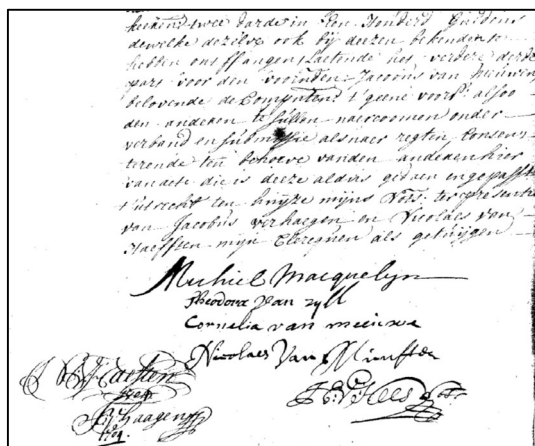 twee darde in Een Honderd Guldens
dewelke dezelve ook bij deezen bekenden te
hebben ontfangen, Laetende het verdere derde
part voor den voorinden. Jacobus van
belovende de Comptten t'geene voorsz alsoo
den anderen te sullen naercoomen onder
verband en submissie als naer regten, Consen
terende ten behoeve vanden anderen hier
van acte die is deeze aldus gedaen en gepasst
t'utrecht ten huijze mijns Nots: ter presentie
van Jacobus verhaegen en Nicolaes van
Haeften mijn Clercquen als getuijgen
Michiel Macquelyn
Theodora van zyll
Cornelia van
Nicolaes Van
Haeften
Haagen
Hees Nots